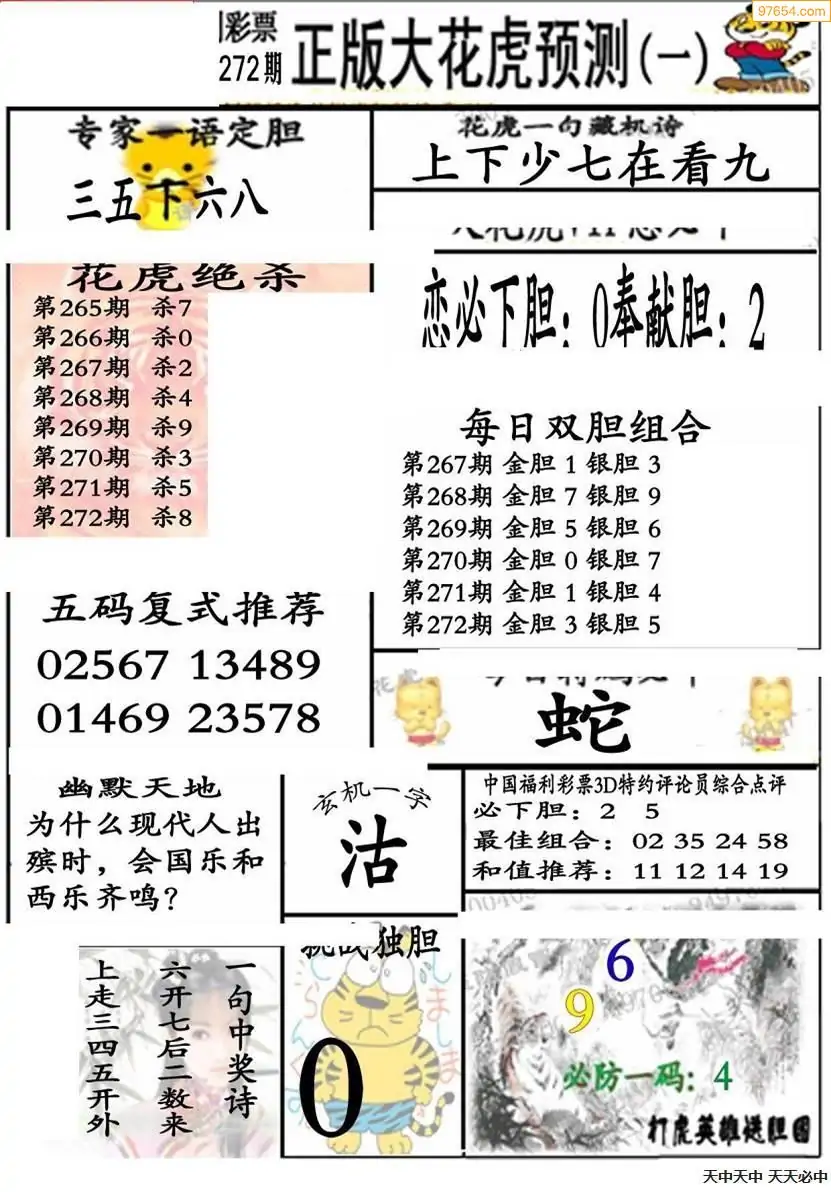 97654.com
彩票
272期
正版大花虎预测(一)
专家一语定胆
三五下六八
花虎一句藏机诗
上下少七在看九
花虎绝杀
第265期 杀7
第266期 杀0
第267期 杀2
第268期 杀4
第269期 杀9
第270期 杀3
第271期 杀5
第272期 杀8
恋必下胆：0奉献胆：2
每日双胆组合
第267期 金胆 1 银胆 3
第268期 金胆 7 银胆 9
第269期 金胆 5 银胆 6
第270期 金胆 0 银胆 7
第271期 金胆 1 银胆 4
第272期 金胆 3 银胆 5
五码复式推荐
02567 13489
01469 23578
蛇
幽默天地
为什么现代人出
殡时，会国乐和
西乐齐鸣？
玄机一字
沽
中国福利彩票3D特约评论员综合点评
必下胆：2 5
最佳组合：02 35 24 58
和值推荐：11 12 14 19
一句中奖诗
六开七后二数来
上走三四五开外
挑战独胆
0
6
9
必防一码：4
打虎英雄送胆图
天中天中 天天必中